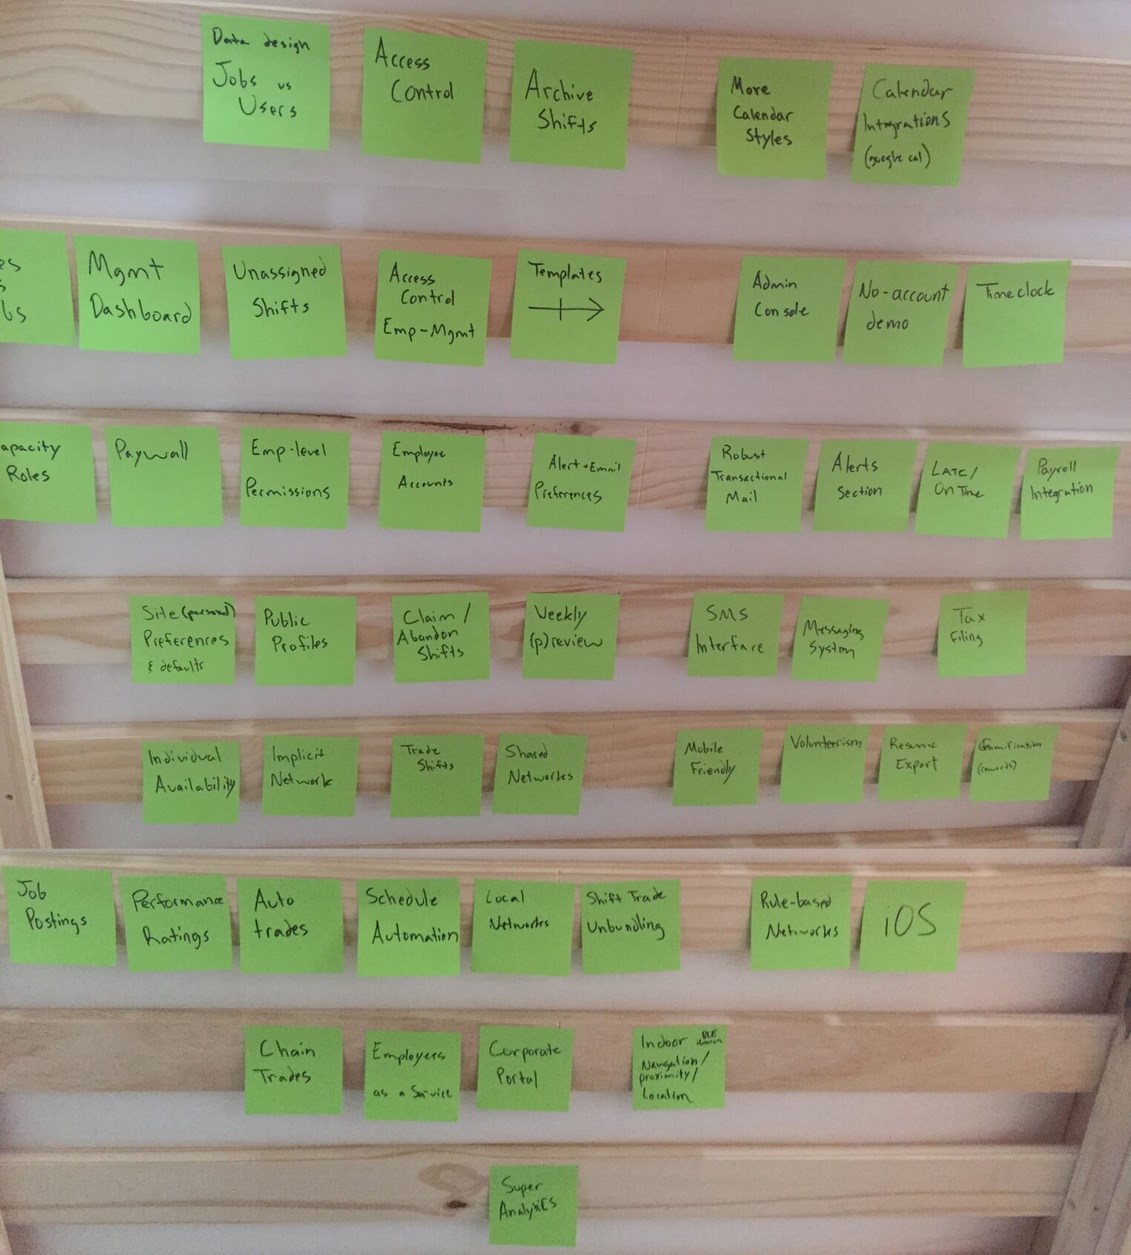 Data design
Jobs vs
Users
Access
Control
Archive
Shifts
More
Calendar
Styles
Calendar
Intgrations
(google cal)
es
s
bs
Mgmt
Dashboard
Unassigned
Shifts
Access
Control
Emp-Mgmt
Templates
Admin
Console
No-account
demo
Timeclock
apacity
Roles
Paywall
Emp-level
Permissions
Employee
Accounts
Alert + Email
Preferences
Robust
Transactional
Mail
Alerts
Section
LATE/
On Time
Payroll
Integration
Site (personal)
Preferences
& defaults
Public
Profiles
Claim /
Abandon
Shifts
Weekly
(p)review
SMS
Interface
Messaging
System
Tax
Filing
Individual
Availability
Implicit
Network
Trade
Shifts
Shared
Networks
Mobile
Friendly
Volunteerism
Resume
Export
Gamification
(rewards)
Job
Postings
Performance
Ratings
Auto
trades
Schedule
Automation
Local
Networks
Shift Trade
Unbundling
Rule-based
Networks
iOS
Chain
Trades
Employees
as a Service
Corporate
Portal
Indoor BLE
Navigation/
proximity/
Location
Super
Analytics